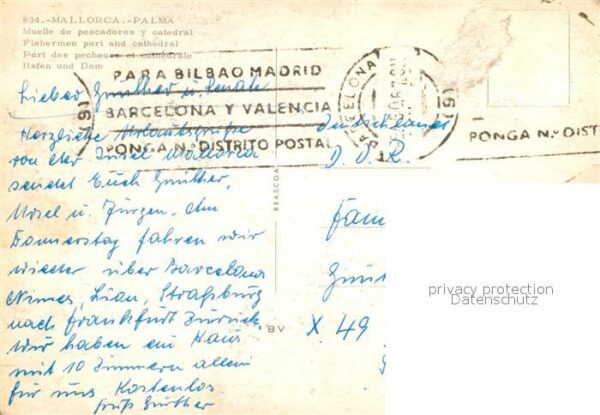 834.-MALLORCA.-PALMA
Muelle de pescadores y catedral
Fishermen port and cathedral
Port des pecheurs et cathédrale
Hafen und Dom
PARA BILBAO MADRID
BARCELONA Y VALENCIA
PONGA N.º DISTRITO POSTAL
BARCELONA
PONGA N.º DISTR
Lieber Günther u. Renate
Herzliche Urlaubsgrüße
von der Insel Mallorca
sendet Euch Günther,
Ursel u. Jürgen. Am
Donnerstag fahren wir
wieder über Barcelona
Nimes, Lion, Straßburg
nach Frankfurt zurück.
Wir haben ein Haus
mit 10 Zimmern allein
für uns Kostenlos
Gruß Günther
BEASCOA
BV
D. D. R.
Fam
Günt
X 49
privacy protection
Datenschutz